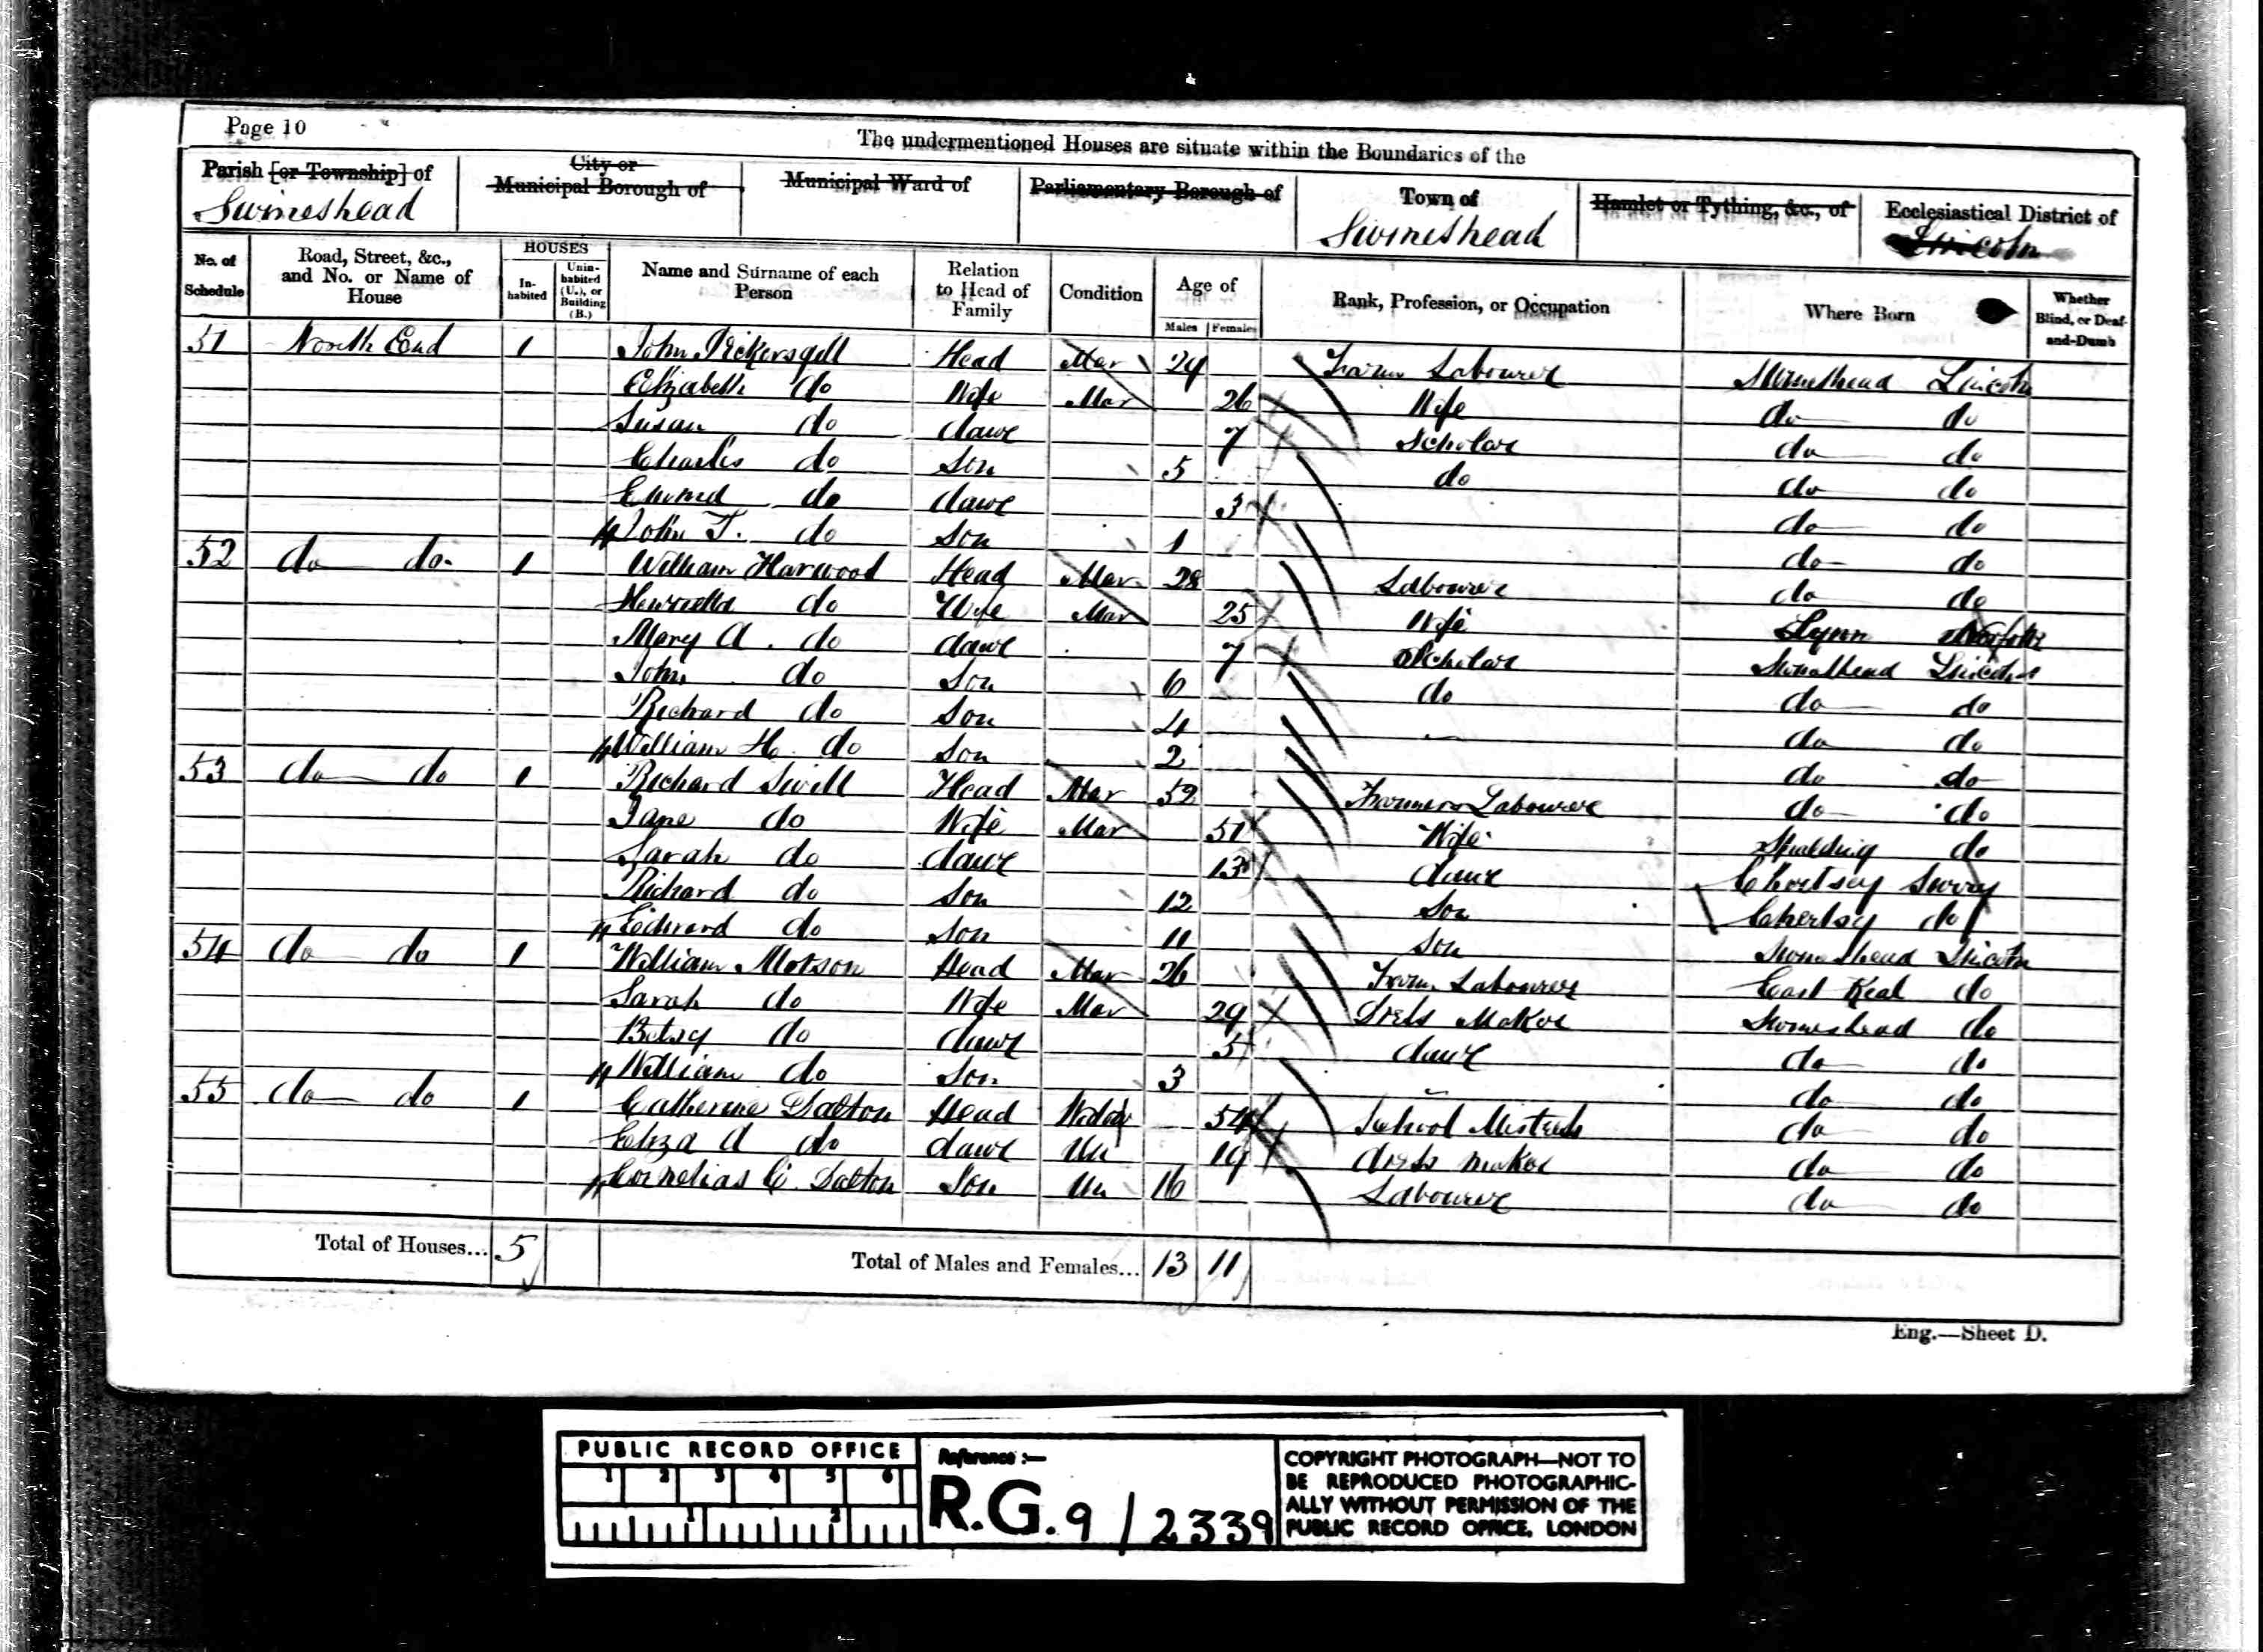 Page 10
The undermentioned Houses are situate within the Boundaries of the
Parish [or Township] of City or Municipal Borough of Municipal Ward of Parliamentary Borough of Town of Hamlet or Tything, &c., of Ecclesiastical District of
Swineshead Swineshead Lincoln
No. of Schedule Road, Street, &c., and No. or Name of House HOUSES Inhabited Uninhabited (U.), or Building (B.) Name and Surname of each Person Relation to Head of Family Condition Age of Males Females Rank, Profession, or Occupation Where Born Whether Blind, or Deaf-and-Dumb
51 North End 1 John Pickersgill Head Mar 29 Farm Labourer Swineshead Lincoln
Elizabeth do Wife Mar 26 Wife do do
Susan do daur 7 Scholar do do
Charles do Son 5 do do do
do daur 3 do do
John T. do Son 1 do do
52 do do 1 William Harwood Head Mar 28 Labourer do do
Henrietta do Wife Mar 25 Wife Lynn Norfolk
Mary A. do daur 7 Scholar Swineshead Lincoln
John do Son 6 do do do
Richard do Son 4 do do
William H. do Son 2 do do
53 do do 1 Richard Head Mar 52 Farmers Labourer do do
Jane do Wife Mar 51 Wife Spalding do
Sarah do daur 13 daur Chertsey Surry
Richard do Son 12 Son Chertsy do
Edward do Son 11 Son Swineshead Lincoln
54 do do 1 William Motson Head Mar 26 Farm Labourer East Keal do
Sarah do Wife Mar 29 Dress Maker Swineshead do
Betsy do daur 5 daur do do
William do Son 3 do do
55 do do 1 Catherine Dalton Head Widow 54 School Mistress do do
Eliza A do daur Un 19 dress maker do do
Cornelias C. Dalton Son Un 16 Labourer do do
Total of Houses... 5 Total of Males and Females... 13 11
Eng.—Sheet D.
PUBLIC RECORD OFFICE
1 2 3 4 5 6
1 2
Reference:—
R.G. 9 / 2339
COPYRIGHT PHOTOGRAPH—NOT TO
BE REPRODUCED PHOTOGRAPHIC-
ALLY WITHOUT PERMISSION OF THE
PUBLIC RECORD OFFICE, LONDON